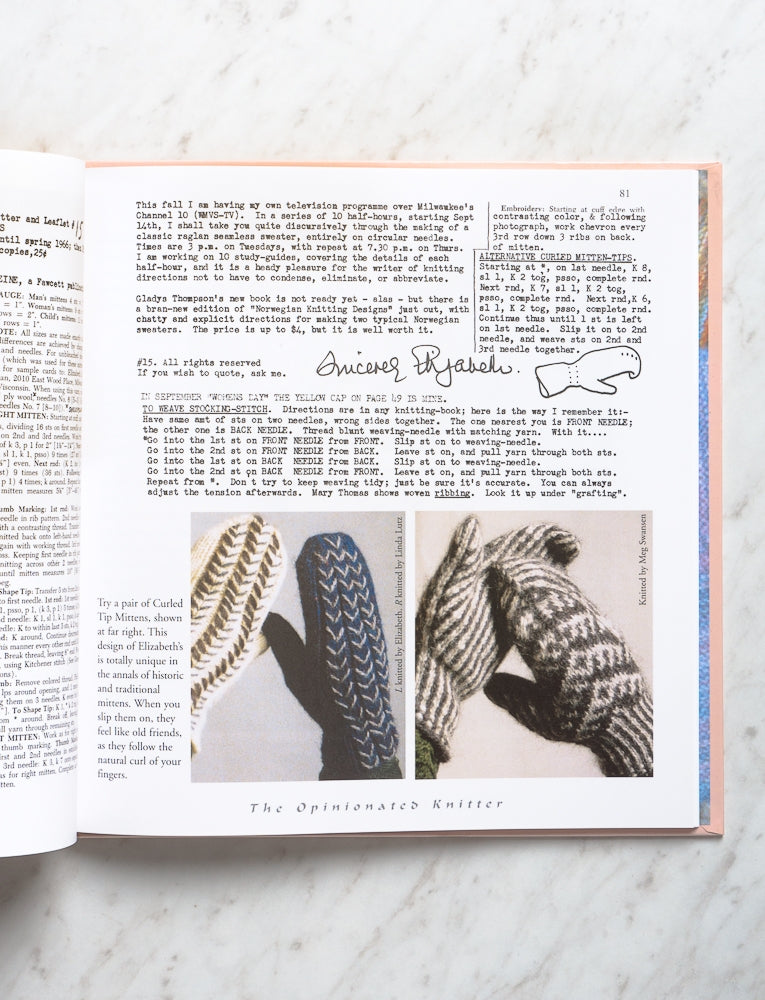 tter and Leaflet #15
S
until spring 1966;
copies, 25¢
EINE, a Fawcett
AUGE: Man's mittens
= 1". Woman's mittens
ows = 2". Child's mittens
rows = 1".
OTE: All sizes are made
differences are achieved by
and needles. For
(which was used for
for sample cards to
an, 2010 East Wood Place,
Wisconsin. When using
ply wool,
eedles No. 7 [8–10].
GHT MITTEN: Starting at
, dividing 16 sts on first
on 2nd and 3rd needles.
of k 3, p 1 for 2"
sl 1, k 1, psso) 9 times
"] even. Next rnd:
st) 9 times (36 sts).
p 1) 4 times; k around.
mitten measures
umb Marking: 1st rnd:
eedle in rib pattern.
ith a contrasting thread.
nitted back onto left-hand
gain with working thread.
oss. Keeping first needle in
nitting across other 2
until mitten measures
eg.
Shape Tip: Transfer
to first needle. 1st rnd:
1, psso, p 1, (k 3, p 1) 3 times
needle: K 1, sl 1, k 1, psso
sts. K to within last 3 sts,
d: K around. Continue
his manner every other rnd
Break thread, leaving
using Kitchener stitch
ons).
mb: Remove colored thread.
lps around opening, and
ng them on 3 needles. K
"]. To Shape Tip: K 1,
om * around. Break off,
ll yarn through remaining
T MITTEN: Work as for
thumb marking. Thumb
irst and 2nd needles in
3rd needle: K 3, k 7
as for right mitten. Complete
tten.
81
This fall I am having my own television programme over Milwaukee's
Channel 10 (WMVS-TV). In a series of 10 half-hours, starting Sept
14th, I shall take you quite discursively through the making of a
classic raglan seamless sweater, entirely on circular needles.
Times are 3 p.m. on Tuesdays, with repeat at 7.30 p.m. on Thurs.
I am working on 10 study-guides, covering the details of each
half-hour, and it is a heady pleasure for the writer of knitting
directions not to have to condense, eliminate, or abbreviate.
Gladys Thompson's new book is not ready yet - alas - but there is
a bran-new edition of "Norwegian Knitting Designs" just out, with
chatty and explicit directions for making two typical Norwegian
sweaters. The price is up to $4, but it is well worth it.
#15. All rights reserved
If you wish to quote, ask me.
Sincerely Elizabeth.
Embroidery: Starting at cuff edge with
contrasting color, & following
photograph, work chevron every
3rd row down 3 ribs on back.
of mitten.
ALTERNATIVE CURLED MITTEN-TIPS.
Starting at *, on 1st needle, K 8,
sl 1, K 2 tog, psso, complete rnd.
Next rnd, K 7, sl 1, K 2 tog,
psso, complete rnd. Next rnd, K 6,
sl 1, K 2 tog, psso, complete rnd.
Continue thus until 1 st is left
on 1st needle. Slip it on to 2nd
needle, and weave sts on 2nd and
3rd needle together.
IN SEPTEMBER "WOMENS DAY" THE YELLOW CAP ON PAGE 49 IS MINE.
TO WEAVE STOCKING-STITCH. Directions are in any knitting-book; here is the way I remember it:-
Have same amt of sts on two needles, wrong sides together. The one nearest you is FRONT NEEDLE;
the other one is BACK NEEDLE. Thread blunt weaving-needle with matching yarn. With it....
*Go into the 1st st on FRONT NEEDLE from FRONT. Slip st on to weaving-needle.
Go into the 2nd st on FRONT NEEDLE from BACK. Leave st on, and pull yarn through both sts.
Go into the 1st st on BACK NEEDLE from BACK. Slip st on to weaving-needle.
Go into the 2nd st on BACK NEEDLE from FRONT. Leave st on, and pull yarn through both sts.
Repeat from *. Don t try to keep weaving tidy; just be sure it's accurate. You can always
adjust the tension afterwards. Mary Thomas shows woven ribbing. Look it up under "grafting".
Try a pair of Curled
Tip Mittens, shown
at far right. This
design of Elizabeth's
is totally unique in
the annals of historic
and traditional
mittens. When you
slip them on, they
feel like old friends,
as they follow the
natural curl of your
fingers.
L knitted by Elizabeth. R knitted by Linda Lutz
Knitted by Meg Swansen
The Opinionated Knitter